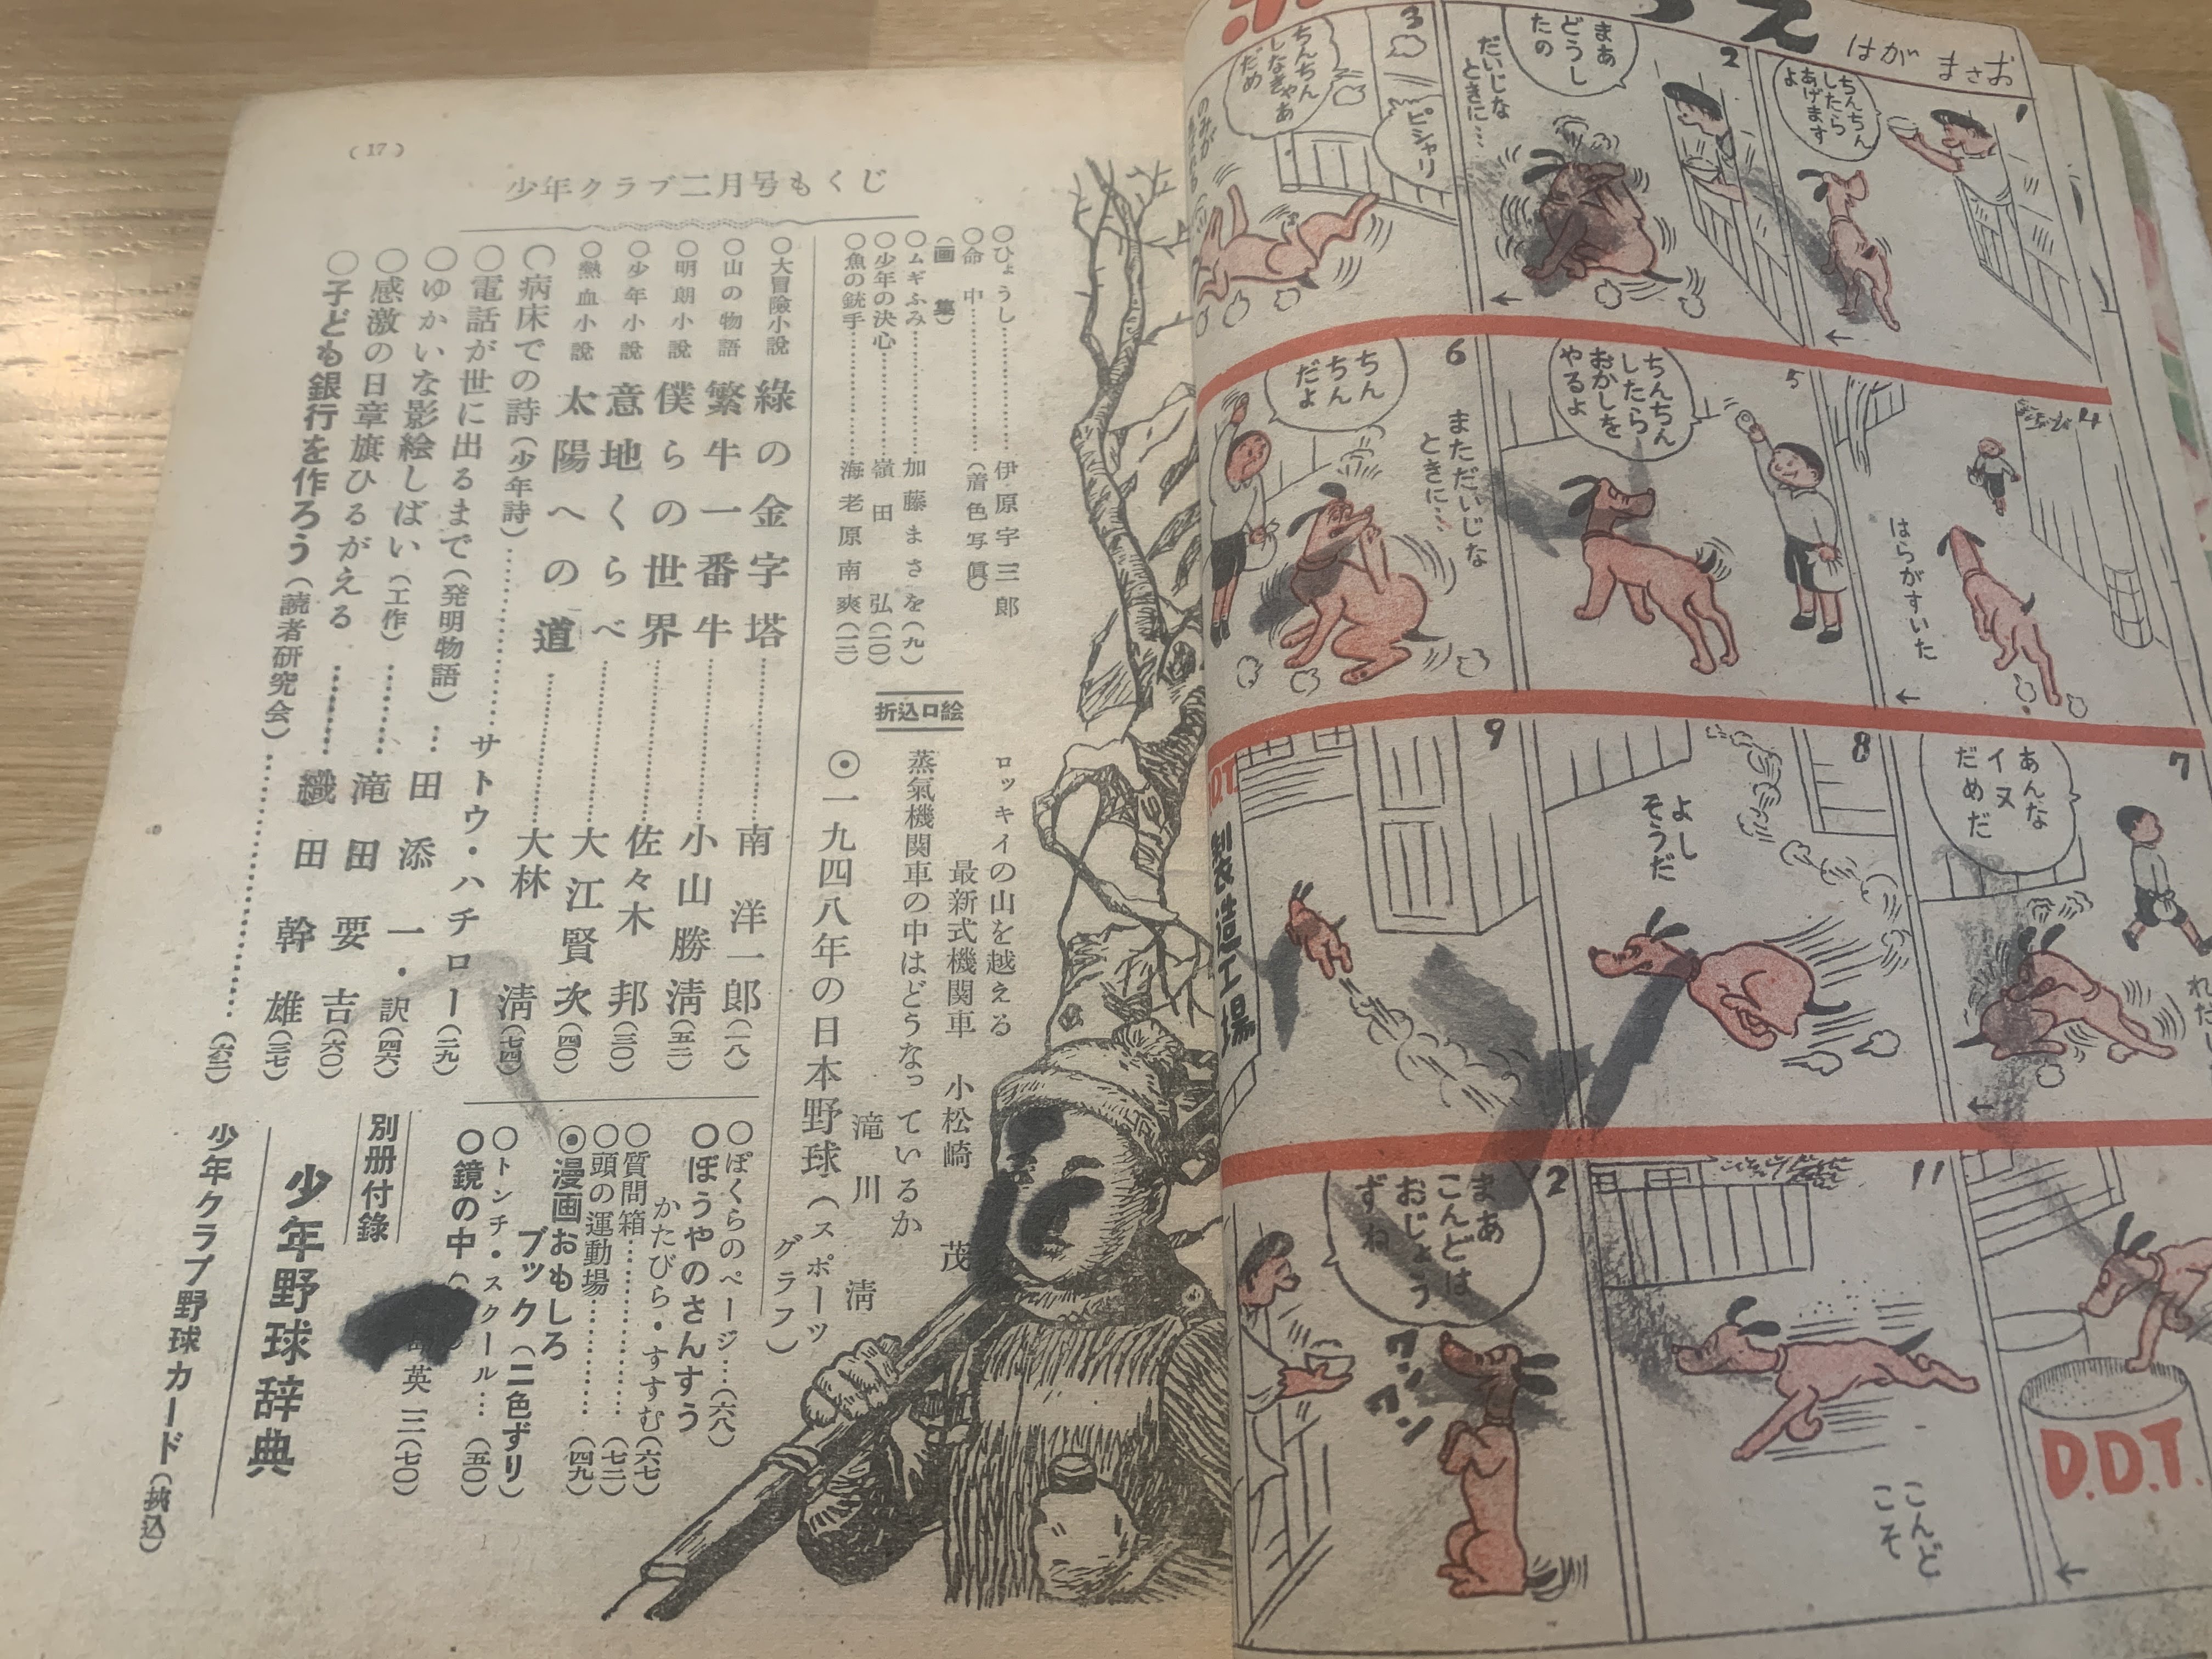 はが まさお
1
ちんちん
したら
あげます
よ
2
まあ
どうし
たの
だいじな
ときに…
3
ピシャリ
ちんちん
しなきゃあ
だめ
のみが
4
はらがすいた
5
ちんちん
したら
おかしを
やるよ
6
まただいじな
ときに…
ちん
ちん
だよ
7
あんな
イヌ
だめだ
8
よし
そうだ
9
D.T.
製造工場
D.D.T.
11
こんど
こそ
2
まあ
こんどは
おじょう
ずね
ワンワンワン
(17)
少年クラブ二月号もくじ
○ひょうし………………伊原宇三郎
○命中………………(着色写眞)
(画集)
○ムギふみ………………加藤まさを(九)
○少年の決心………………嶺田弘(一〇)
○魚の銃手………………海老原南爽(一二)
折込口絵
ロッキイの山を越える
最新式機関車 小松崎茂
蒸氣機関車の中はどうなっているか
滝川清
◉一九四八年の日本野球(スポーツグラフ)
○大冒險小説 綠の金字塔………………南洋一郎(一八)
○山の物語 繁牛一番牛………………小山勝淸(五二)
○明朗小説 僕らの世界………………佐々木邦(三〇)
○少年小説 意地くらべ………………大江賢次(四〇)
○熱血小説 太陽への道………………大林淸(七四)
○病床での詩(少年詩)………………サトウ・ハチロー(二九)
○電話が世に出るまで(発明物語)…田添一・訳(四六)
○ゆかいな影絵しばい(工作)………滝田要吉(六〇)
○感激の日章旗ひるがえる………織田幹雄(三七)
○子ども銀行を作ろう(読者研究会)………………(六二)
○ぼくらのページ…(六八)
○ぼうやのさんすう
かたびら・すすむ(六七)
○質問箱………………(七二)
○頭の運動場………………(四九)
◉漫画おもしろ
ブック(二色ずり)
○トンチ・スクール…(五〇)
○鏡の中
英二(七〇)
別册付錄
少年野球辞典
少年クラブ野球カード(挾込)